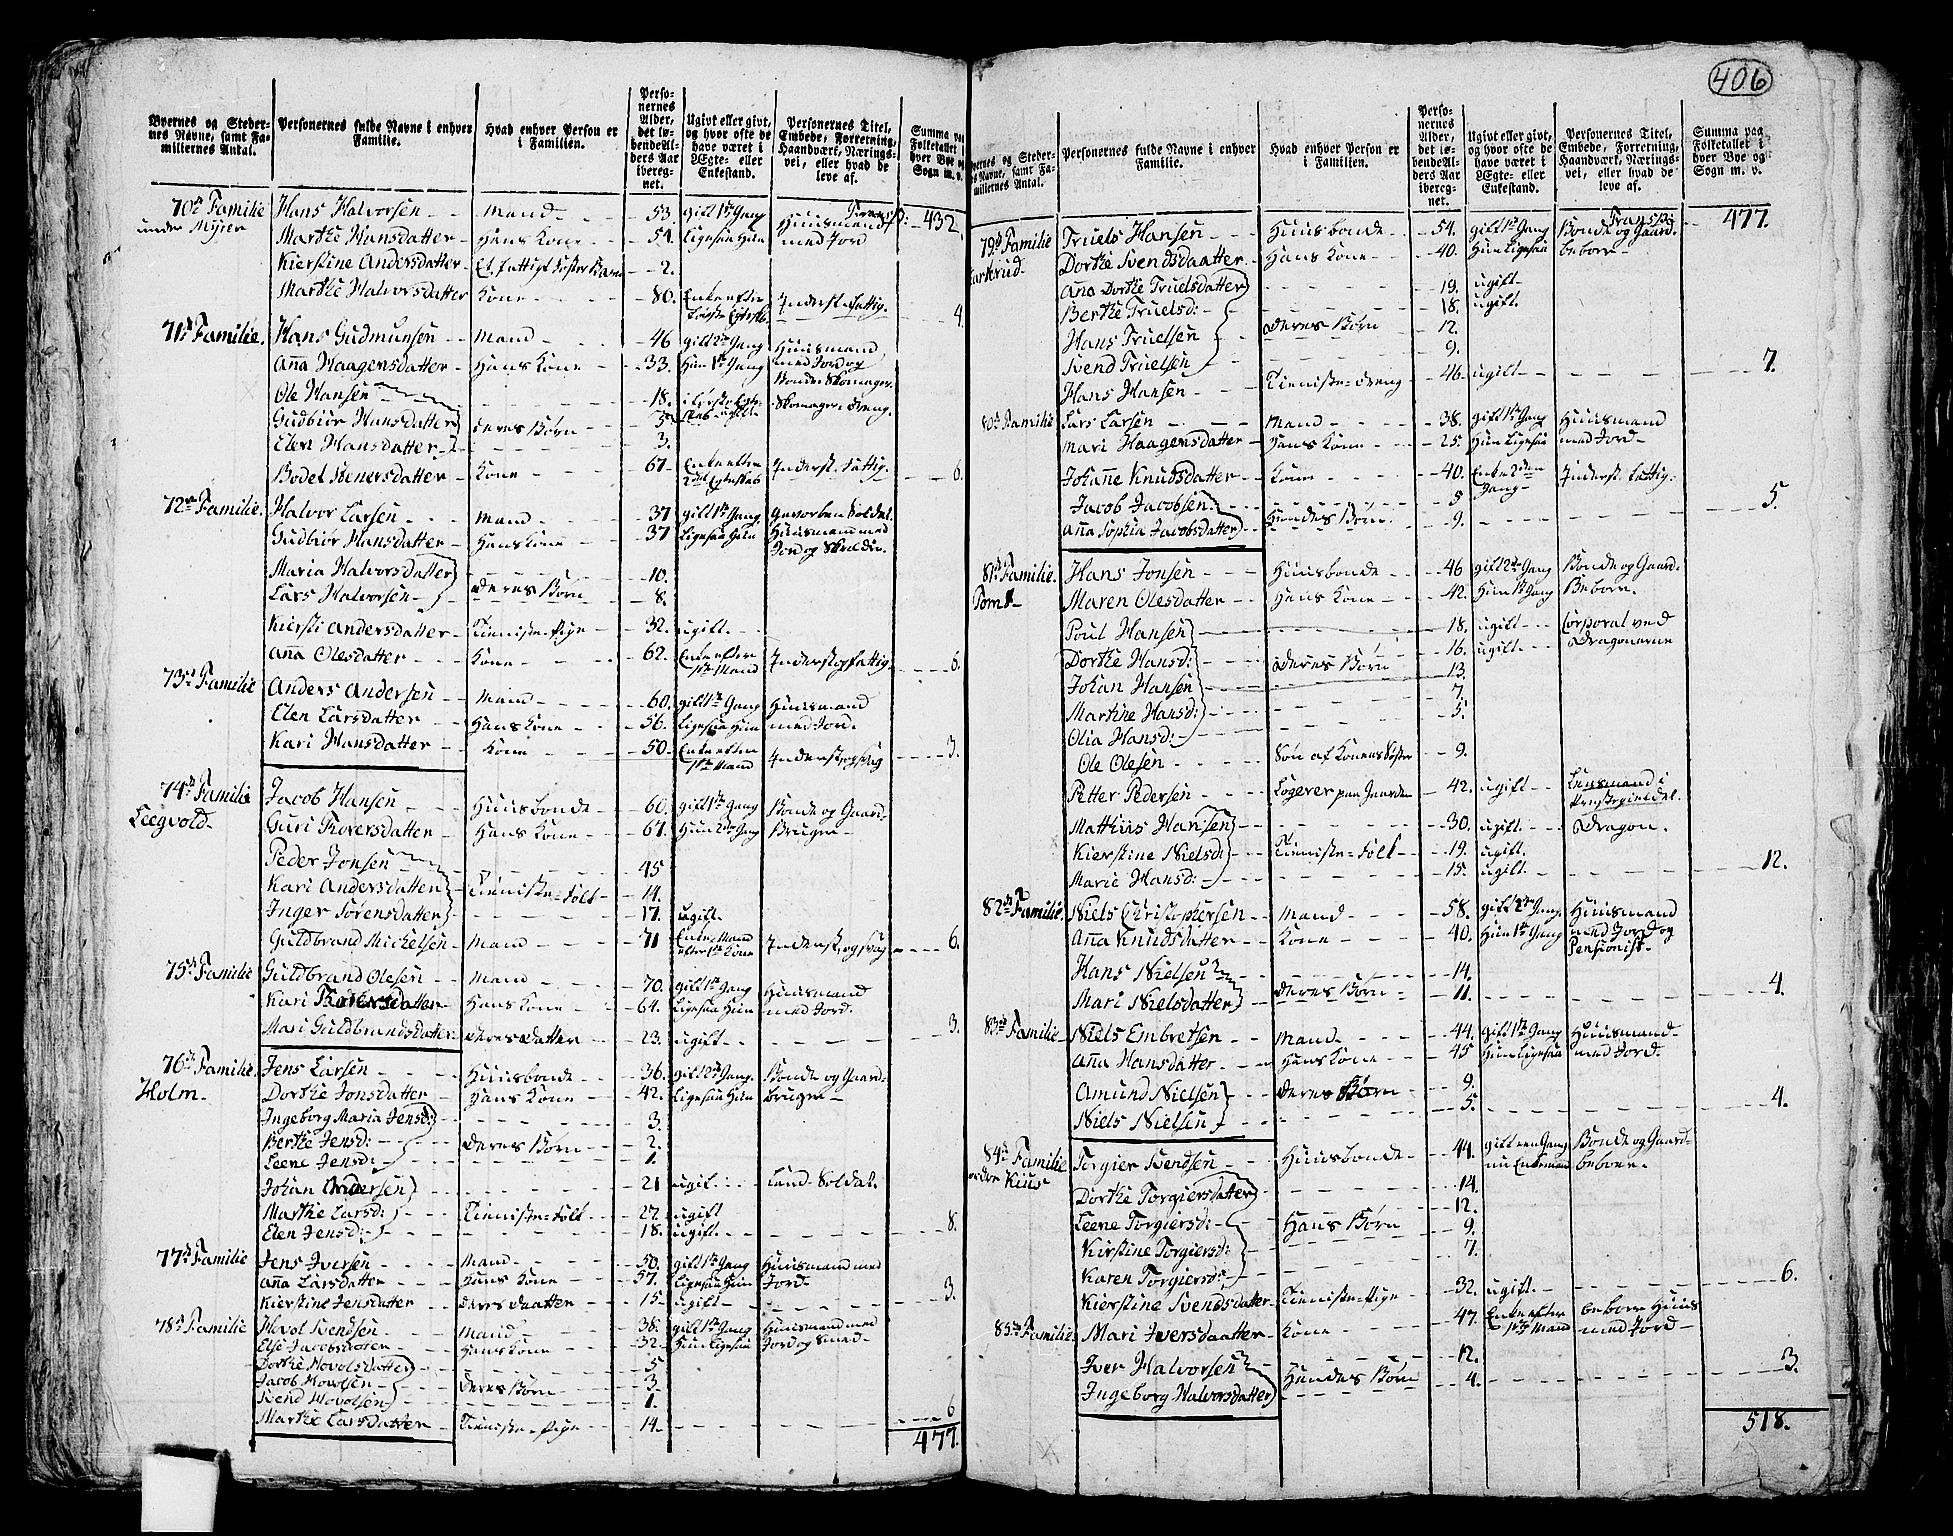 406
Byernes og Stedernes Navne, samt Familiernes Antal. | Personernes fulde Navne i enhver Familie. | Hvad enhver Person er i Familien. | Personernes Alder, det løbende Alders Aar iberegnet. | Ugivt eller givt, og hvor ofte de have været i Ægte- eller Enkestand. | Personernes Titel, Embede, Forretning, Haandværk, Næringsvei, eller hvad de leve af. | Summa paa Folketallet i hver Bye og Sogn m. v.
Transp: 432.
70de Familie Hans Halvorsen Mand 53. gift 1ste Gang Huusmand
under Myier Marthe Hansdatter Hans Kone 54. Ligesaa Hun med Jord
Kierstine Andersdatter Et fattigt Foster Barn 2.
Marthe Halvorsdatter Kone 80. Enke efter første Egteskb. Inderst. fattig. 4.
71de Familie. Hans Gudmunsen Mand 46 gift 2den Gang Huusmand
Anna Haagensdatter Hans Kone 33. Hun 1ste Gang med Jord og Bonde Skomager.
Ole Hansen 18. ugift Skomager dreng.
Gudbiør Hansdatter Deres Børn 5
Elen Hansdatter 3.
Bodel Reiersdatter Kone 67 Enke efter 2det Egteskab Inderst. fattig. 6.
72de Familie. Halvor Larsen Mand 37 gift 1ste Gang gevorben Soldat
Gudbiør Hansdatter Hans Kone 37 Ligesaa Hun Huusmand med Jord og Skrædder.
Maria Halvorsdatter 10.
Lars Halvorsen Deres Børn 8.
Kiersti Andersdatter Tieniste-Pige 32. ugift.
Anna Olesdatter Kone 62. Enke efter 1ste Mand Inderst og fattig 6.
73de Familie Anders Andersen Mand 60. gift 1ste Gang Huusmand
Elen Larsdatter Hans Kone 56. Ligesaa Hun med Jord.
Kari Hansdatter Kone 50. Enke efter 1ste Mand Inderst og svag 3.
74de Familie Jacob Hansen Huusbonde 60. gift 1ste Gang Bonde og Gaard
Leegvold Guri Toversdatter Hans Kone 67. Hun 2den Gang Bruger
Peder Jonsen 45
Kari Andersdatter Tieniste-Folk 14.
Inger Sørensdatter 17. ugift.
Guldbrand Michelsen Mand 71 Enke-Mand efter 1ste Kone Inderst, og svag 6.
75de Familie Guldbrand Olesen Mand 70. gift 1ste Gang Huusmand
Kari Toversdatter Hans Kone 64. Ligesaa Hun med Jord.
Mari Guldbrandsdatter Deres Datter 23. ugift 3.
76de Familie. Jens Larsen Huusbonde 36. gift 2den Gang. Bonde og Gaard-
Holm Dorthe Jonsdatter Hans Kone 42. Ligesaa Hun bruger
Ingeborg Maria Jensd: 3.
Berthe Jensd: Deres Børn 2.
Leene Jensd: 1.
Johan Andersen 21 ugift Land-Soldat.
Marthe Larsd: Tieniste-Folk 22. ugift
Elen Jensd: 18. ugift. 8.
77de Familie Jens Iversen Mand 50. gift 1ste Gang Huusmand med
Anna Larsdatter Hans Kone 57. Ligesaa Hun Jord.
Kierstine Jensdatter Deres Daatter 15. ugift 3.
78de Familie Hovol Svendsen Mand 38. gift 1ste Gang Huusmand med
Else Jacobsdatter Hans Kone 32. Hun Ligesaa Jord og Smed
Dorthe Hovolsdatter 5
Jacob Hovolsen Deres Børn 3.
Svend Hovolsen 1.
Marthe Larsdatter Tieniste-Pige 14. 6
477.
Byernes og Stedernes Navne, samt Familiernes Antal. | Personernes fulde Navne i enhver Familie. | Hvad enhver Person er i Familien. | Personernes Alder, det løbende Alders Aar iberegnet. | Ugivt eller givt, og hvor ofte de have været i Ægte- eller Enkestand. | Personernes Titel, Embede, Forretning, Haandværk, Næringsvei, eller hvad de leve af. | Summa paa Folketallet i hver Bye og Sogn m. v.
Transp: 477.
79de Familie Truels Hansen Huusbonde 54. gift 1ste Gang Bonde og Gaard
Dorthe Svendsdaatter Hans Kone 40. Hun Ligesaa beboer
Ana Dorthe Truelsdatter 19. ugift
Berthe Truelsd: 18. ugift.
Hans Truelsen Deres Børn 12.
Svend Truelsen 9.
Hans Hansen Tieniste-dreng 46 ugift 7.
80de Familie Lars Larsen Mand 38. gift 1ste Gang Huusmand
Mari Haagensdatter Hans Kone 25. Hun Ligesaa med Jord
Johanne Knudsdatter Kone 40. Enke 2den Gang Inderst. fattig.
Jacob Jacobsen 5 5.
Ana Sophia Jacobsdatter Hendes Børn 9.
81de Familie. Hans Jonsen Huusbonde 46 gift 2den Gang Bonde og Gaard
Maren Olesdatter Hans Kone 42. Hun 1ste Gang Beboer.
Poul Hansen 18. ugift Corporal ved Dragonerne
Dorthe Hansd: 16. ugift
Johan Hansen Deres Børn 13.
Martine Hansd: 7.
Olia Hansd: 5.
Ole Olesen Søn af Konens Søster 9.
Petter Pedersen Logerer paa Gaarden 42. ugift Lensmand i Præstegieldet.
Mathius Hansen 30. ugift. Dragon.
Kierstine Nielsd: Tieniste-Folk 19. ugift.
Marie Hansd: 15. ugift 12.
82de Familie. Niels Christophersen Mand 58. gift 2den Gang. Huusmand
Anna Knudsdatter Kone 40. Hun 1ste Gang med Jord og Pensionist.
Hans Nielsen 14.
Mari Nielsdatter Deres Børn 11. 4.
83de Familie Niels Embretsen Mand 44. gift 1ste Gang Huusmand
Anna Hansdatter Hans Kone 45 Hun Ligesaa med Jord.
Amund Nielsen Deres Børn 9.
Niels Nielsen 5. 4.
84de Familie Torgier Svendsen Huusbonde 44. gift een Gang Bonde og Gaard-
nu Enkemand beboer
Dorthe Torgiersdatter 14.
Leene Torgiersd: Hans Børn 12.
Kirstine Torgiersd: 9.
Karen Torgiersd: 7.
Kierstine Svendsdatter Tieniste-Pige 32. ugift. 6.
85de Familie. Mari Iversdaatter Kone 47. Enke efter 1ste Mand beboer Huus med Jord
Iver Halvorsen 12.
Ingeborg Halvorsdatter Hendes Børn 4. 3.
518.